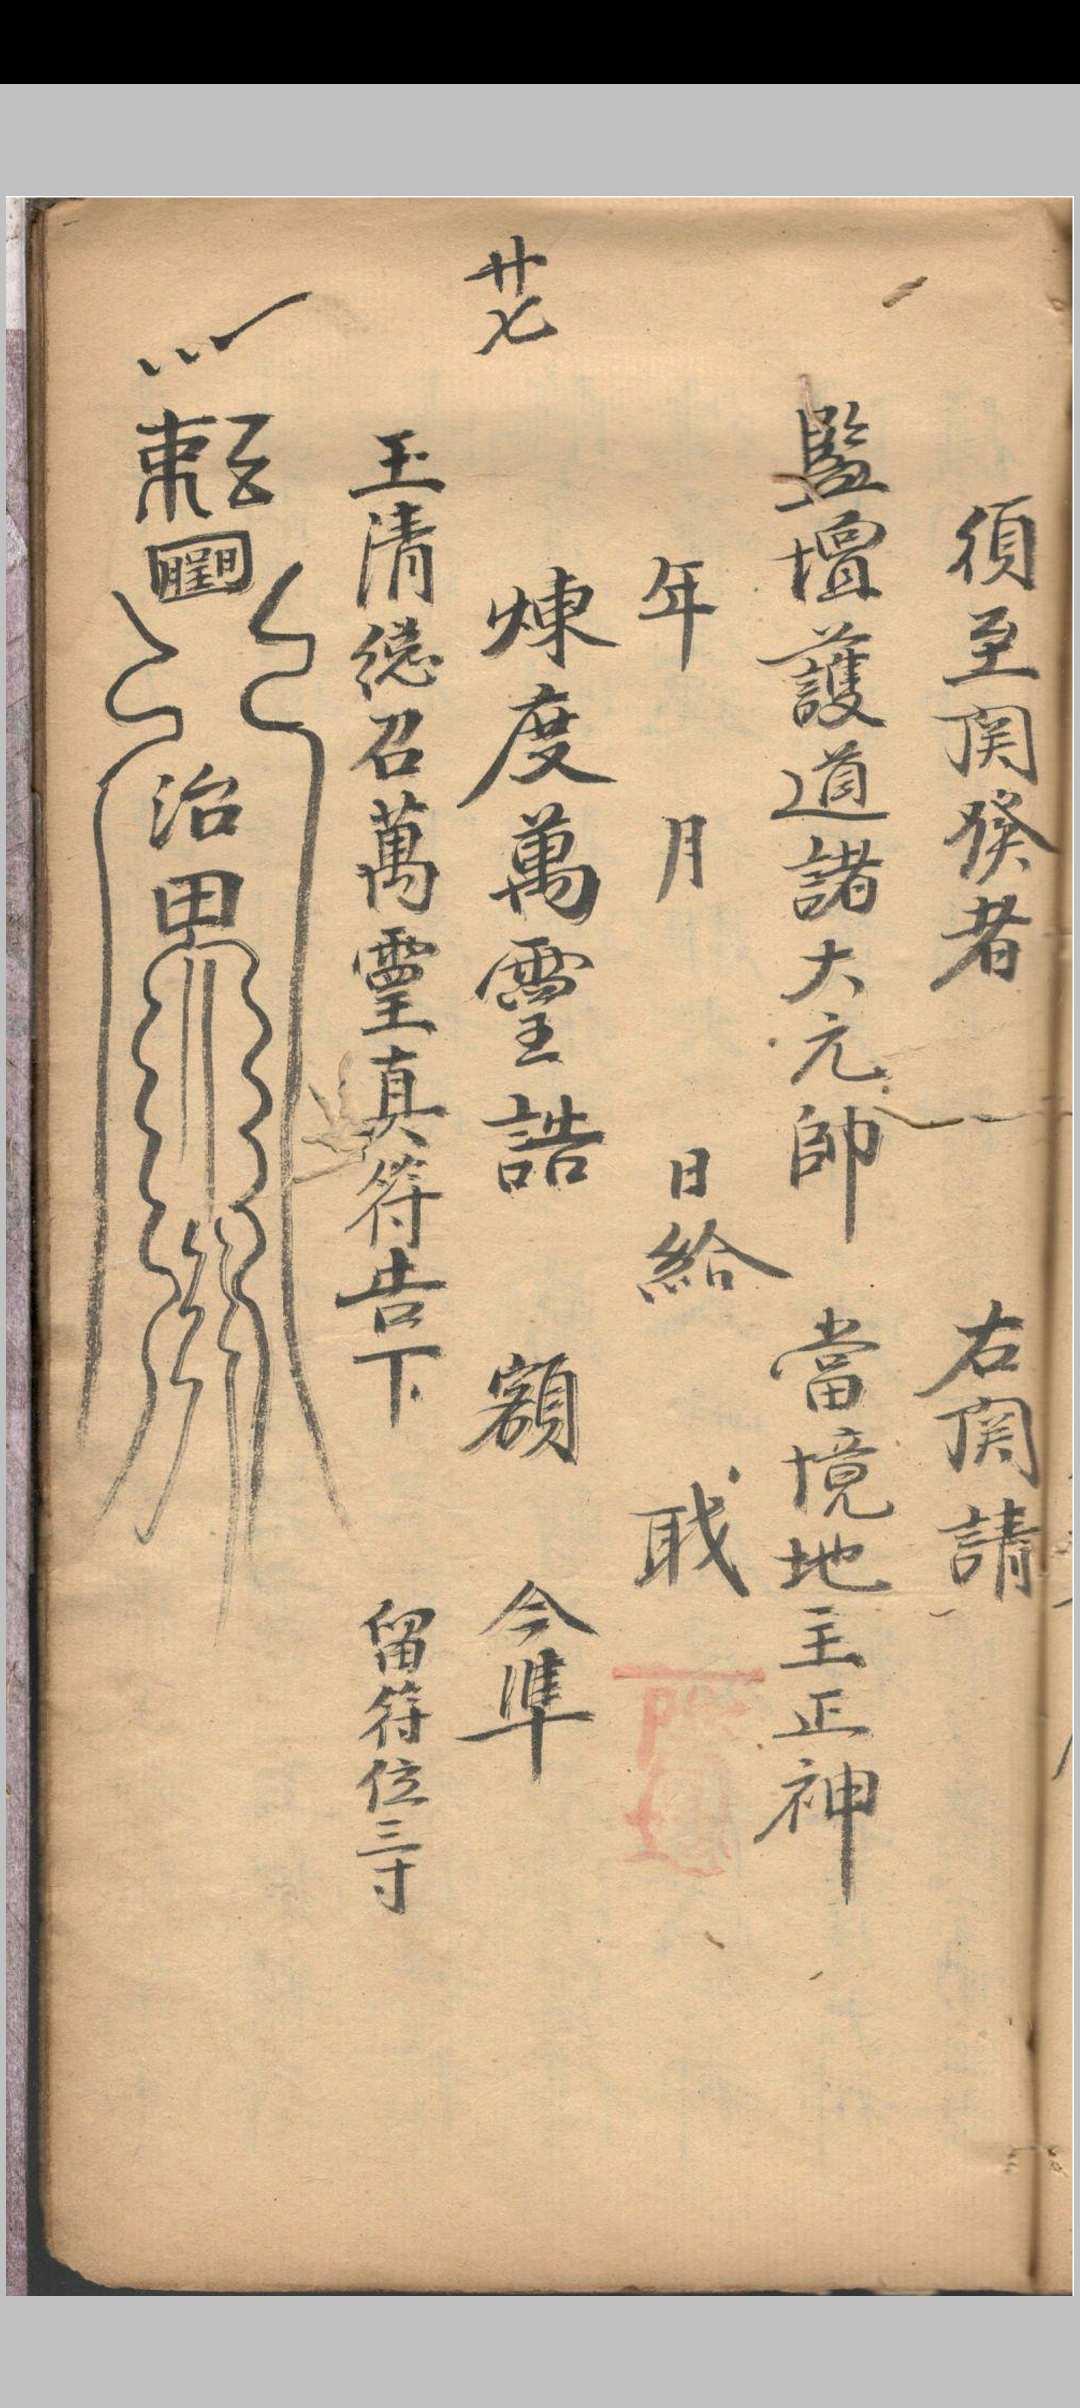 須至関發者　右関請
監壇護道諸大元帥　當境地主正神
年　月　日給　職
廿七
煉度萬靈誥　額　今準
玉清總召萬靈真符告下　留符位三寸
治